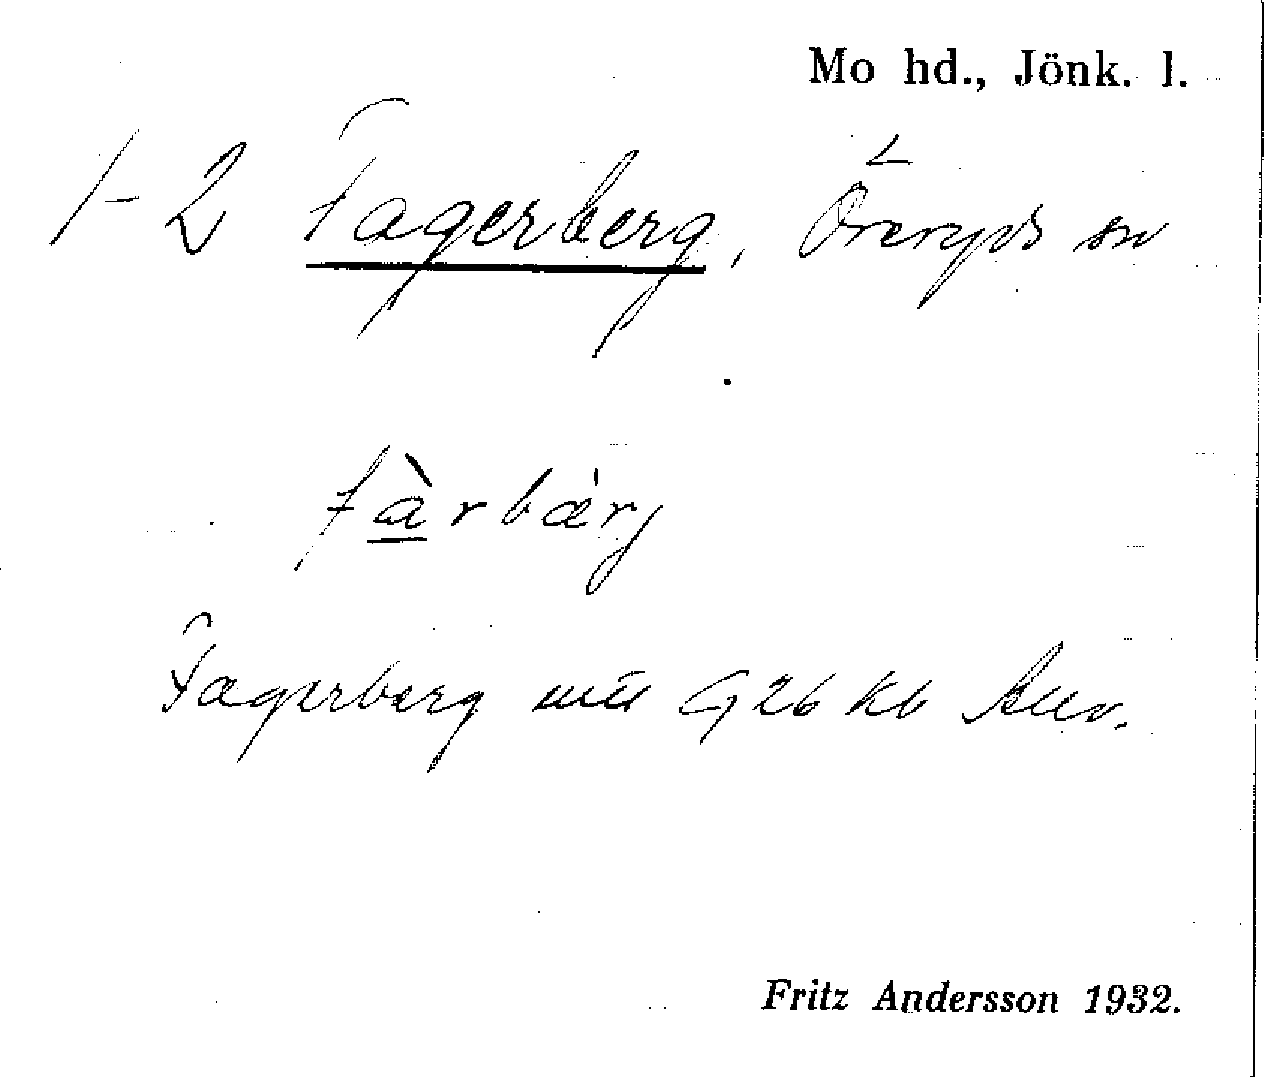 Mo hd., Jönk. l.
1-2 Fagerberg, Öreryds sn
fàrbærj
Fagerberg G26 kb
Fritz Andersson 1932.